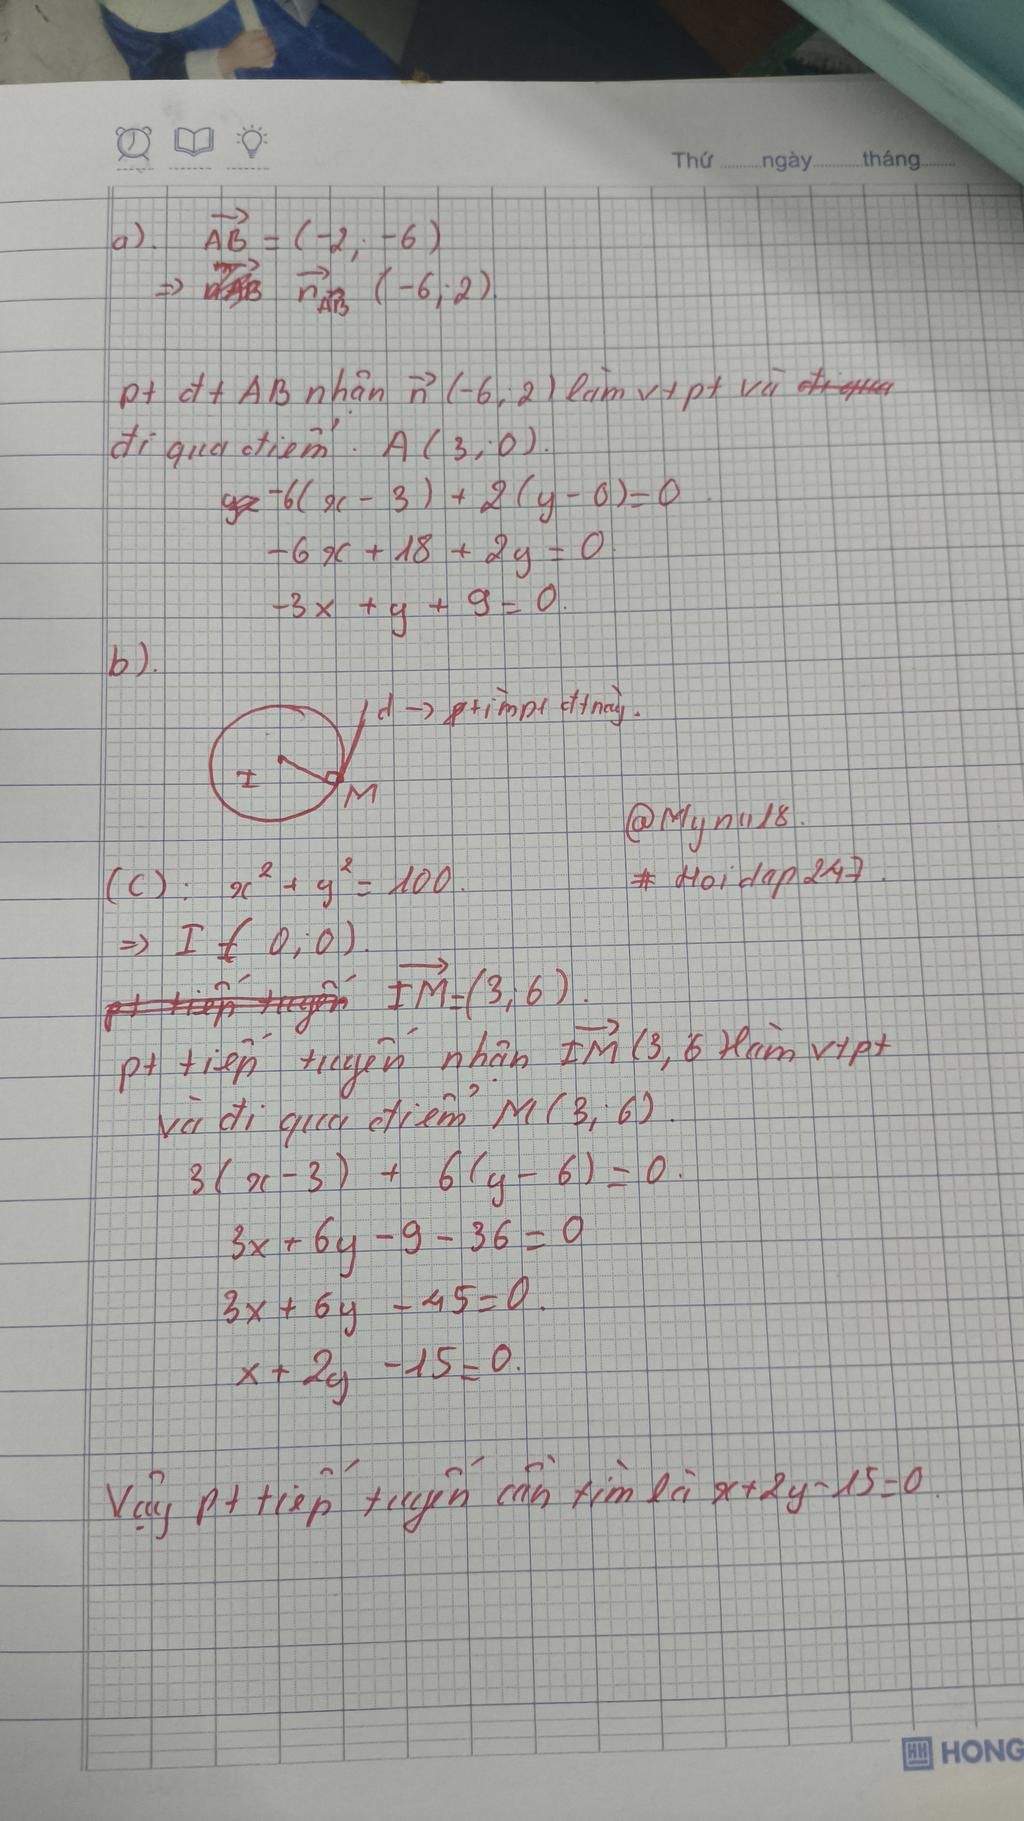 Thứ ........ngày..........tháng........
a). AB = (-2; -6)
=> n AB (-6; 2)
pt đt AB nhận n (-6; 2) làm vtpt và đi qua
đi qua điểm. A (3; 0).
-6(x - 3) + 2(y - 0) = 0
-6x + 18 + 2y = 0
-3x + y + 9 = 0.
b).
d → tìm pt đt này.
I
M
@Mynu18.
(C): x² + y² = 100.
# Hoidap247.
=> I (0; 0).
pt tiếp tuyến IM = (3; 6).
pt tiếp tuyến nhận IM (3; 6) làm vtpt
và đi qua điểm M (3; 6).
3(x - 3) + 6(y - 6) = 0.
3x + 6y - 9 - 36 = 0
3x + 6y - 45 = 0.
x + 2y - 15 = 0.
Vậy pt tiếp tuyến cần tìm là x + 2y - 15 = 0.
HONG